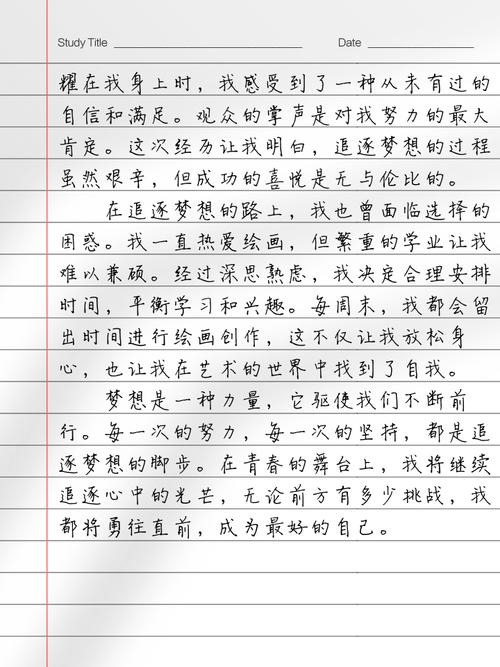 Study Title Date
耀在我身上时，我感受到了一种从未有过的
自信和满足。观众的掌声是对我努力的最大
肯定。这次经历让我明白，追逐梦想的过程
虽然艰辛，但成功的喜悦是无与伦比的。
在追逐梦想的路上，我也曾面临选择的
困惑。我一直热爱绘画，但繁重的学业让我
难以兼顾。经过深思熟虑，我决定合理安排
时间，平衡学习和兴趣。每周末，我都会留
出时间进行绘画创作，这不仅让我放松身
心，也让我在艺术的世界中找到了自我。
梦想是一种力量，它驱使我们不断前
行。每一次的努力，每一次的坚持，都是追
逐梦想的脚步。在青春的舞台上，我将继续
追逐心中的光芒，无论前方有多少挑战，我
都将勇往直前，成为最好的自己。